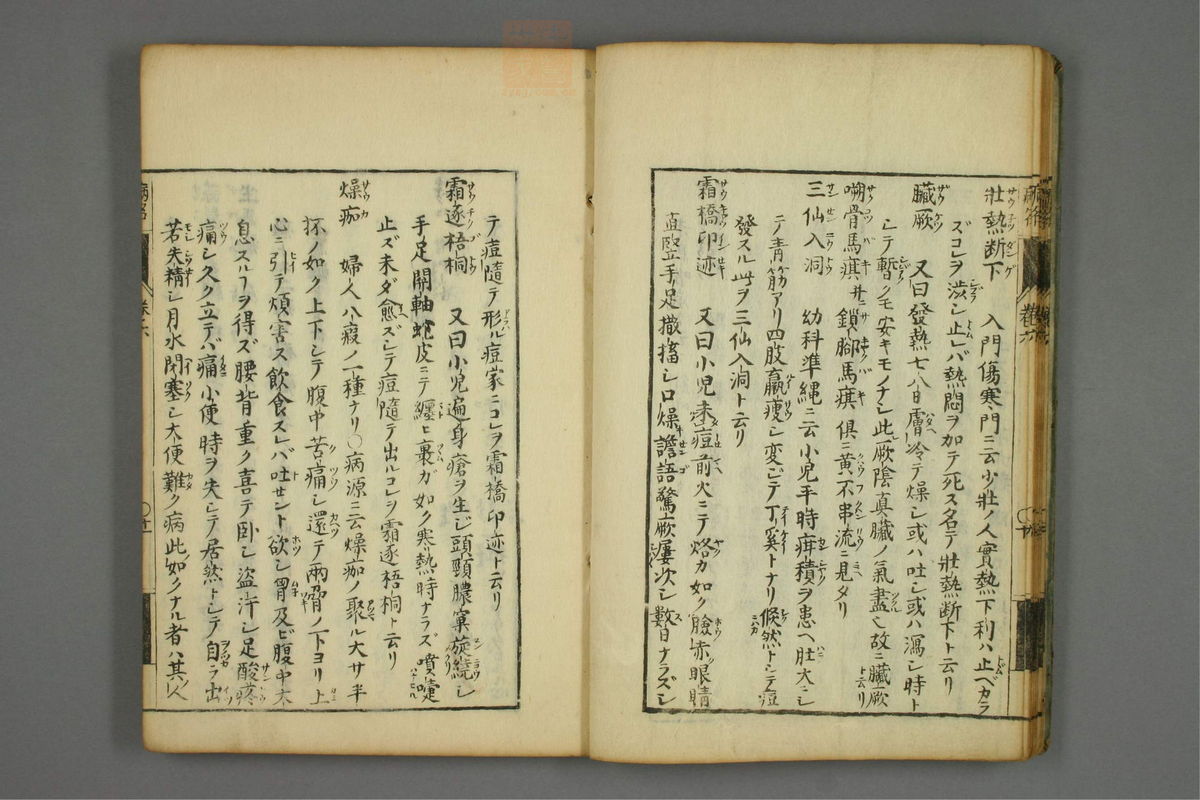 壯熱断下　入門傷寒門ニ云少壯ノ人實熱下利ハ止ベカラ
ズコレヲ渋シ止レバ熱悶ヲ加テ死ス名テ壯熱断下ト云リ
臟厥　又曰發熱七八日膚冷テ燥シ或ハ吐シ或ハ瀉シ時ト
シテ暫クモ安キモノナシ此厥陰真臟ノ氣盡也故ニ臟厥ト云リ
嗍骨馬㾏并ニ鎖腳馬㾏　倶ニ黄不串流ニ見タリ
三仙入洞　幼科準縄ニ云小児平時疳積ヲ患ヘ肚大ニシ
テ青筋アリ四肢羸瘦シ変ジテ丁奚トナリ倐然トシテ痘
發スル此ヲ三仙入洞ト云リ
霜橋印迹　又曰小児未痘前火ニテ烙カ如ク臉赤眼睛
直竪手足撒搐シ口燥譫語驚厥屢次シ數日ナラズシ
テ痘隨テ形ル痘家ニコレヲ霜橋印迹ト云リ
霜逐梧桐　又曰小児遍身瘡ヲ生ジ頭頸膿窠旋繞シ
手足關軸蛇皮ニテ纏ヒ裹ガ如ク寒熱時ナラズ噴嚏
止ズ未ダ愈ズシテ痘隨テ出ルコレヲ霜逐梧桐ト云リ
燥痂　婦人八瘕ノ一種ナリ〇病源ニ云燥痂ノ聚ル大サ半
抔ノ如ク上下シテ腹中苦痛シ還テ兩脅ノ下ヨリ上
心ニ引テ煩害ス飲食スレバ吐セント欲シ胃及ビ腹中大
息スルヿヲ得ズ腰背重ク喜テ卧シ盗汗シ足酸疼
痛シ久ク立テバ痛小便時ヲ失シテ居然トシテ自ラ出
若失精シ月水閉塞シ大便難ク病此如クナル者ハ其人